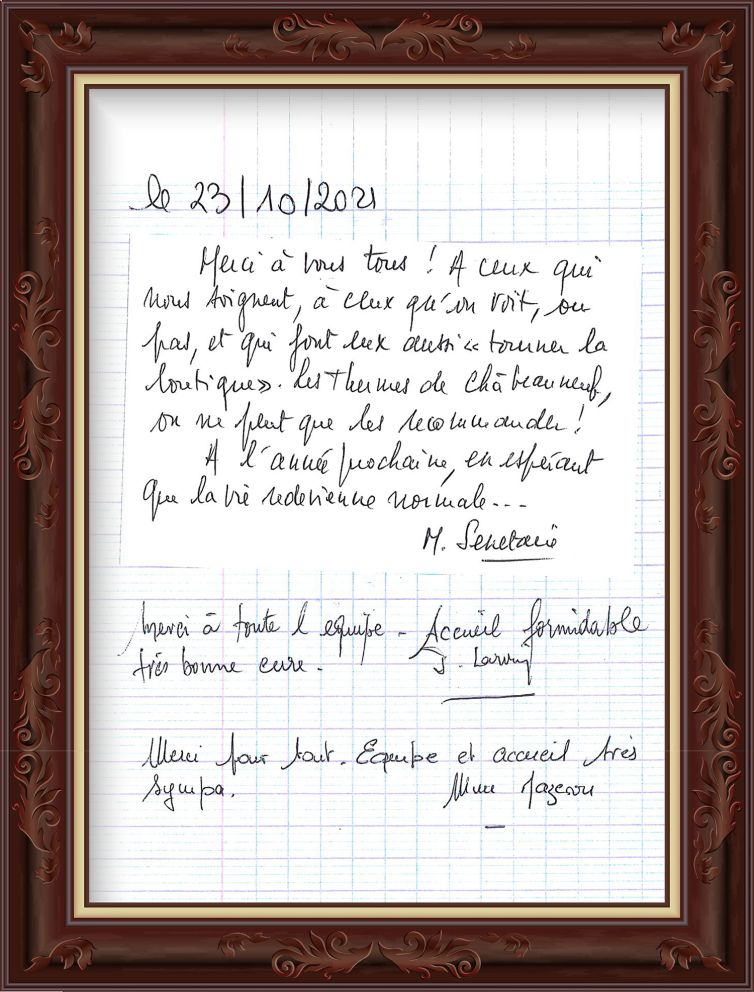 le 23/10/2021
Merci à vous tous ! A ceux qui
nous soignent, à ceux qu'on voit, ou
pas, et qui font eux aussi « tourner la
boutique ». Les Thermes de Châteauneuf,
on ne peut que les recommander !
A l'année prochaine, en espérant
que la vie redevienne normale...
M.
Merci à toute l equipe - Accueil formidable
très bonne cure. J.
Merci pour tout. Equipe et accueil très
sympa. Mme Mazeron